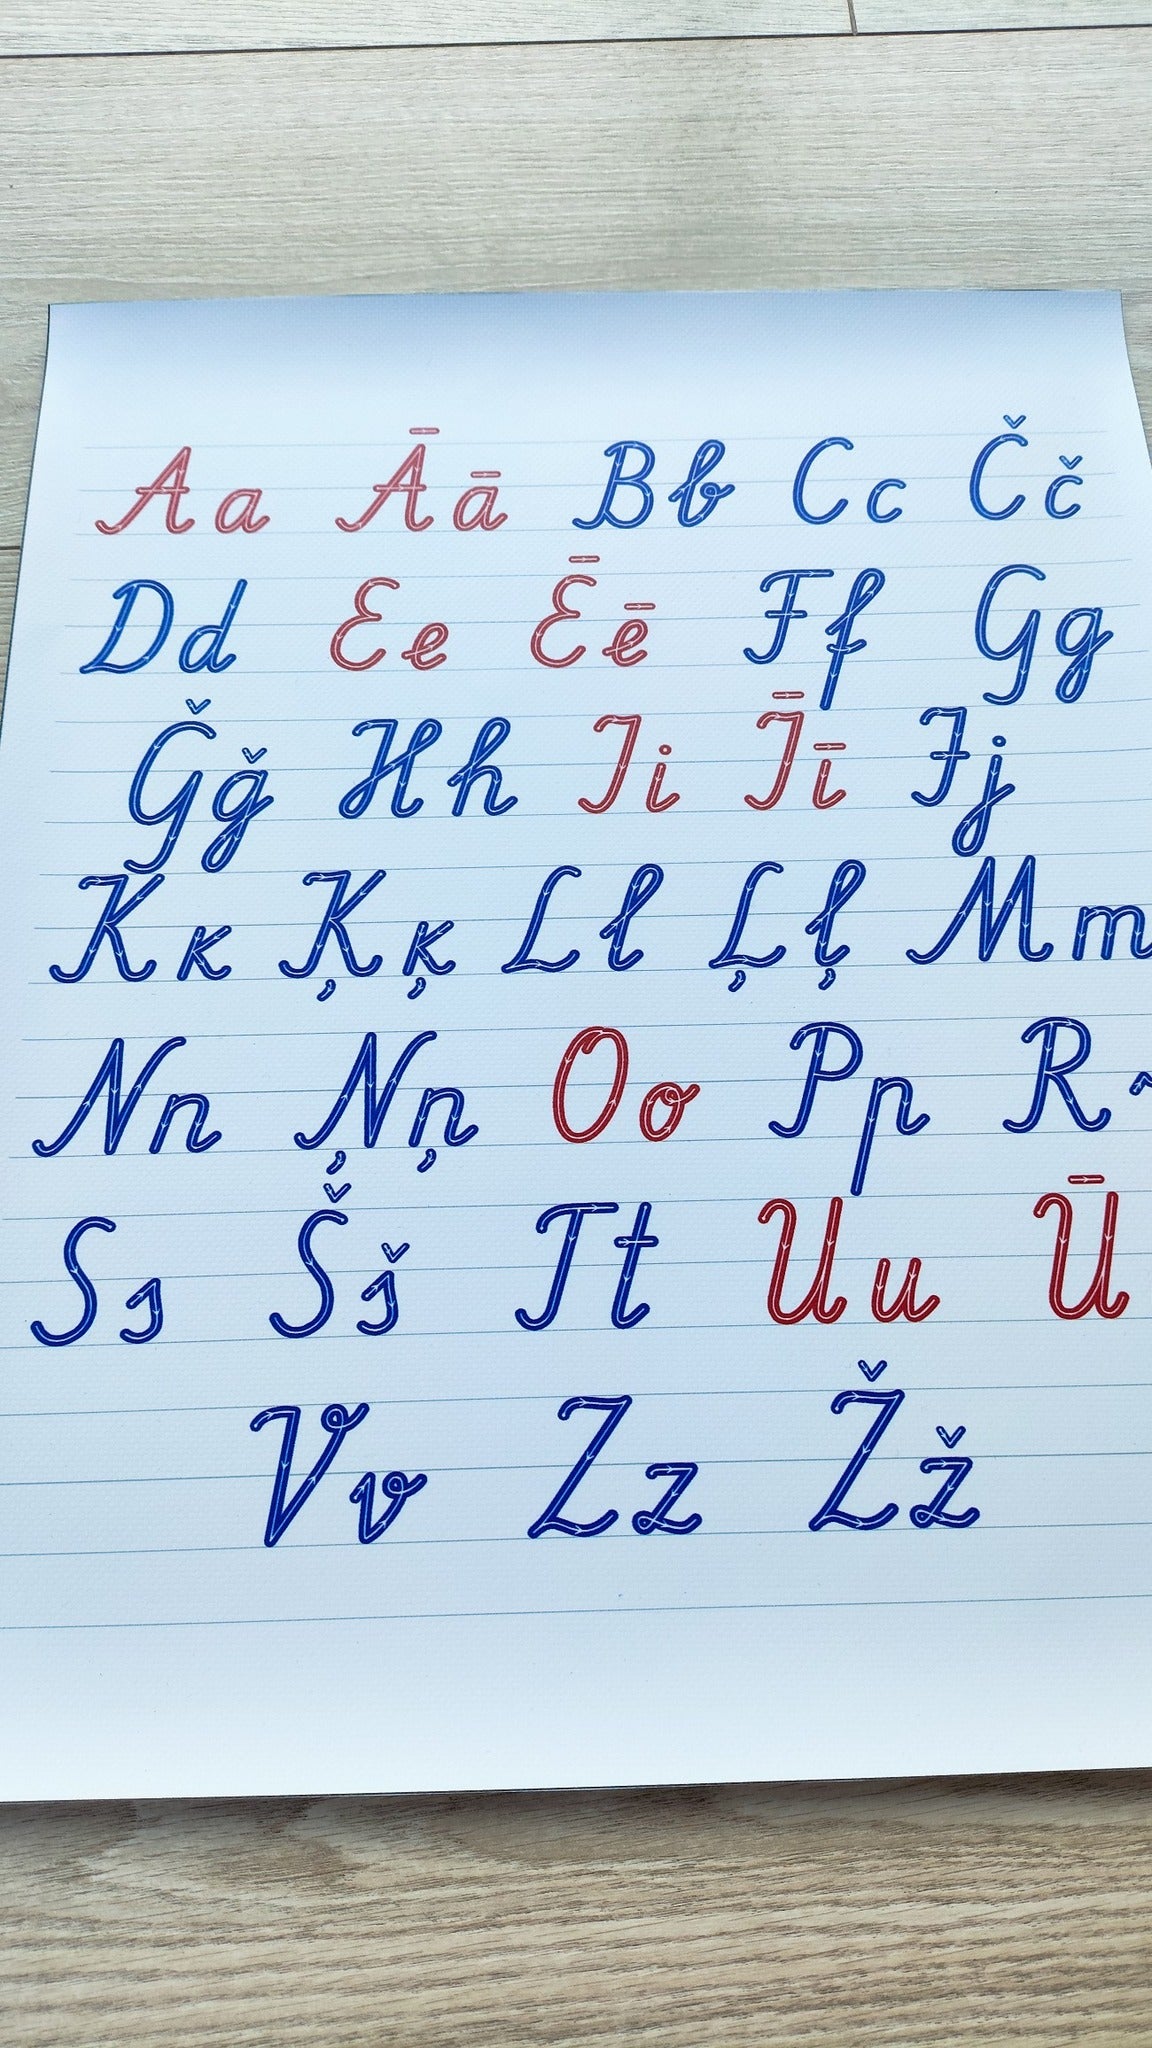 Aa Āā Bb Cc Čč
Dd Ee Ēē Ff Gg
Ǧǧ Hh Ii Īī Jj
Kk Ķķ Ll Ļļ Mm
Nn Ņņ Oo Pp R
Ss Šš Tt Uu Ū
Vv Zz Žž